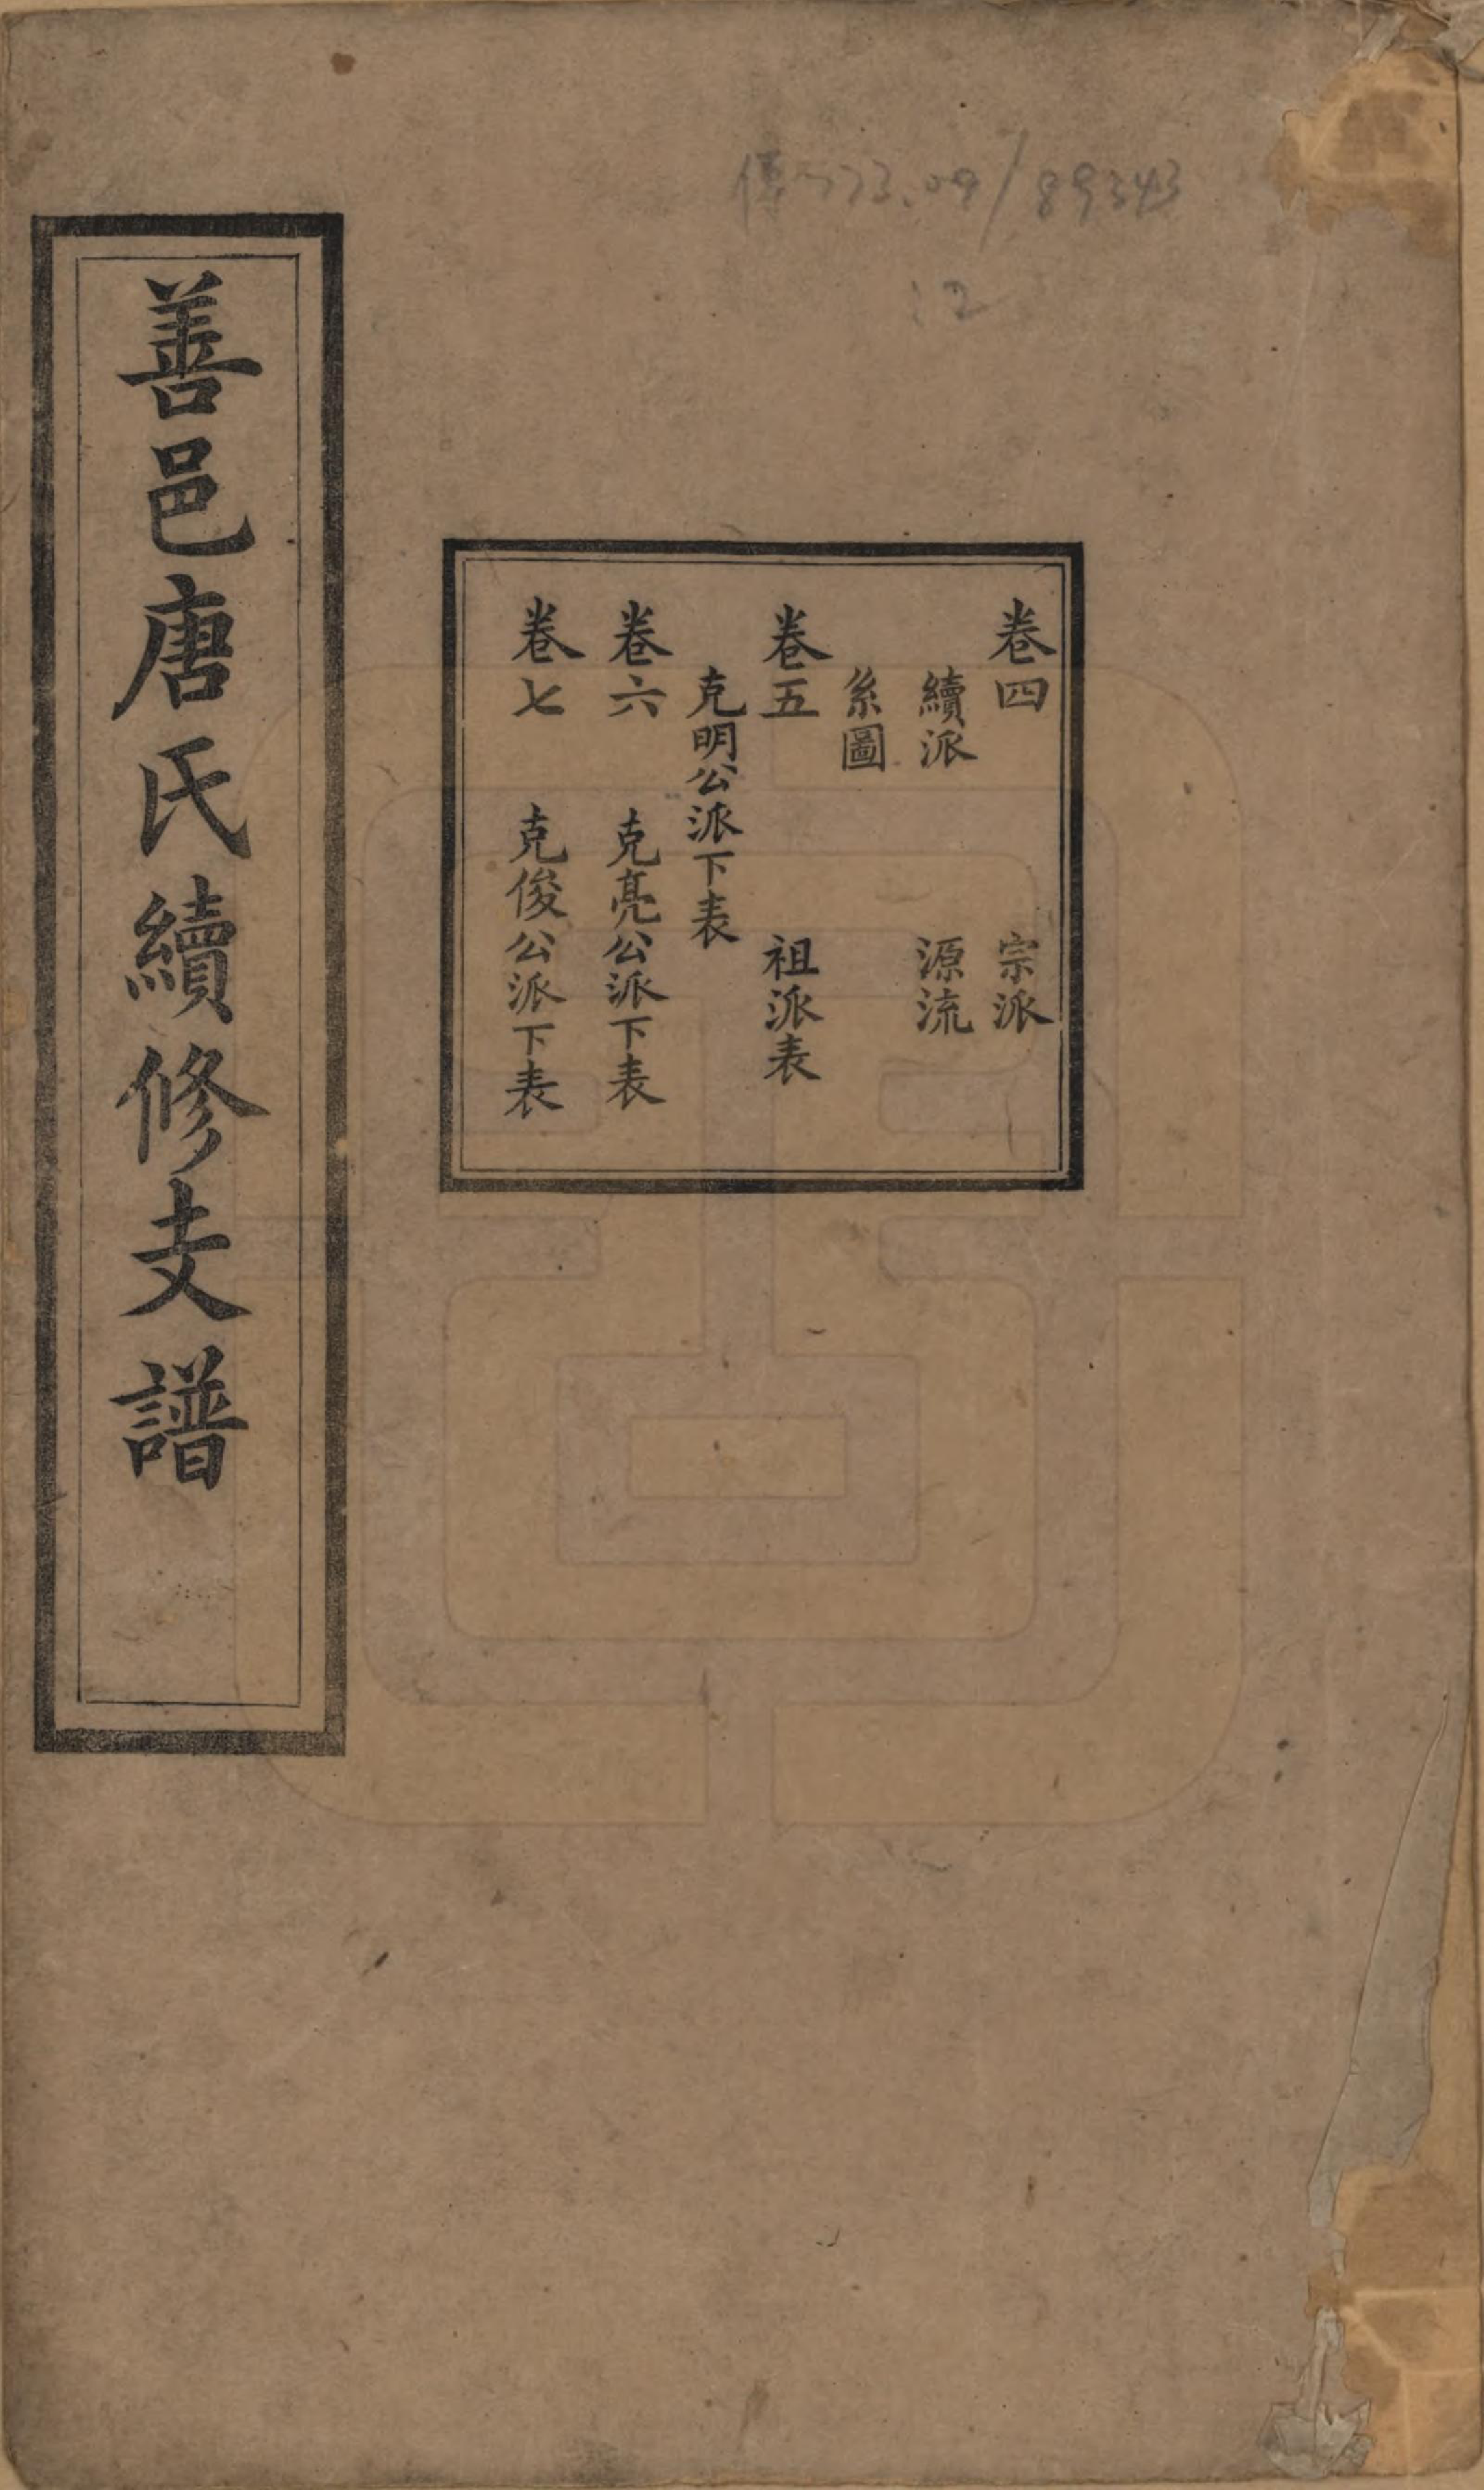 傳773.09/89343
:2
卷四 宗派
續派 源流
系圖
卷五 祖派表
克明公派下表
卷六 克亮公派下表
卷七 克俊公派下表
善邑唐氏續修支譜